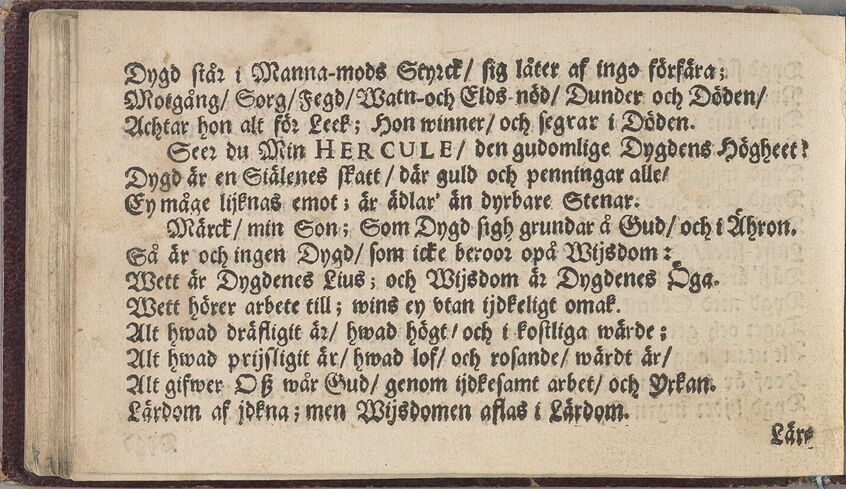 Dygd står i Manna-mods Styrck/ sig låter af ingo förfära;
Motgång/ Sorg/ Fegd/ Watn-och Elds-nöd/ Dunder och Döden/
Achtar hon alt för Leek; Hon winner/ och segrar i Döden.
Seer du Min HERCULE/ den gudomlige Dygdens Högheet?
Dygd är en Siälenes skatt/ där guld och penningar alle/
Ey måge lijknas emot; är ädlar' än dyrbare Stenar.
Märck/ min Son; Som Dygd sigh grundar å Gud/ och i Ähron.
Så är och ingen Dygd/ som icke beroor opå Wijsdom:
Wett är Dygdenes Lius; och Wijsdom är Dygdenes Öga.
Wett hörer arbete till; wins ey vtan ijdkeligt omak.
Alt hwad dräfligit är/ hwad högt/ och i kostliga wärde;
Alt hwad prijsligit är/ hwad lof/ och rosande/ wärdt är/
Alt gifwer Oß wår Gud/ genom ijdkesamt arbet/ och Yrkan.
Lärdom af jdkna; men Wijsdomen aflas i Lärdom.
Lär-